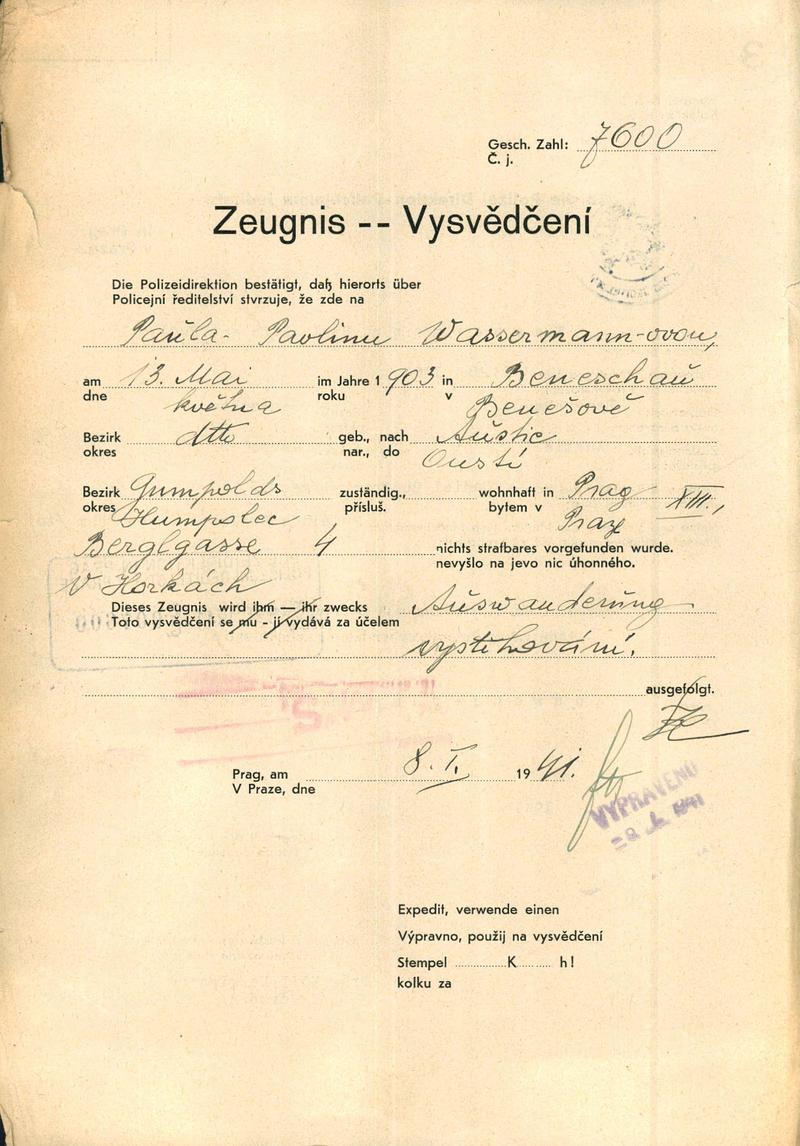 Gesch. Zahl: 7600
Č. j.
Zeugnis -- Vysvědčení
Die Polizeidirektion bestätigt, daß hierorts über
Policejní ředitelství stvrzuje, že zde na
Paula- Pavlinu Wassermann-ovou,
am 13. Mai im Jahre 1903 in Beneschau
dne května roku v Benešově
Bezirk dtto geb., nach Austic
okres nar., do Oustí
Bezirk Gumpolds zuständig., wohnhaft in Prag XIII.,
okres Humpolec přísluš. bytem v Praze
Berglgasse 4 nichts strafbares vorgefunden wurde.
v Horkách nevyšlo na jevo nic úhonného.
Dieses Zeugnis wird ihm — ihr zwecks Auswanderung
Toto vysvědčení se mu - jí vydává za účelem
vystěhování.
ausgefolgt.
Prag, am 8. I. 1941.
V Praze, dne
VYPRAVENO
Expedit, verwende einen
Výpravno, použij na vysvědčení
Stempel K h!
kolku za